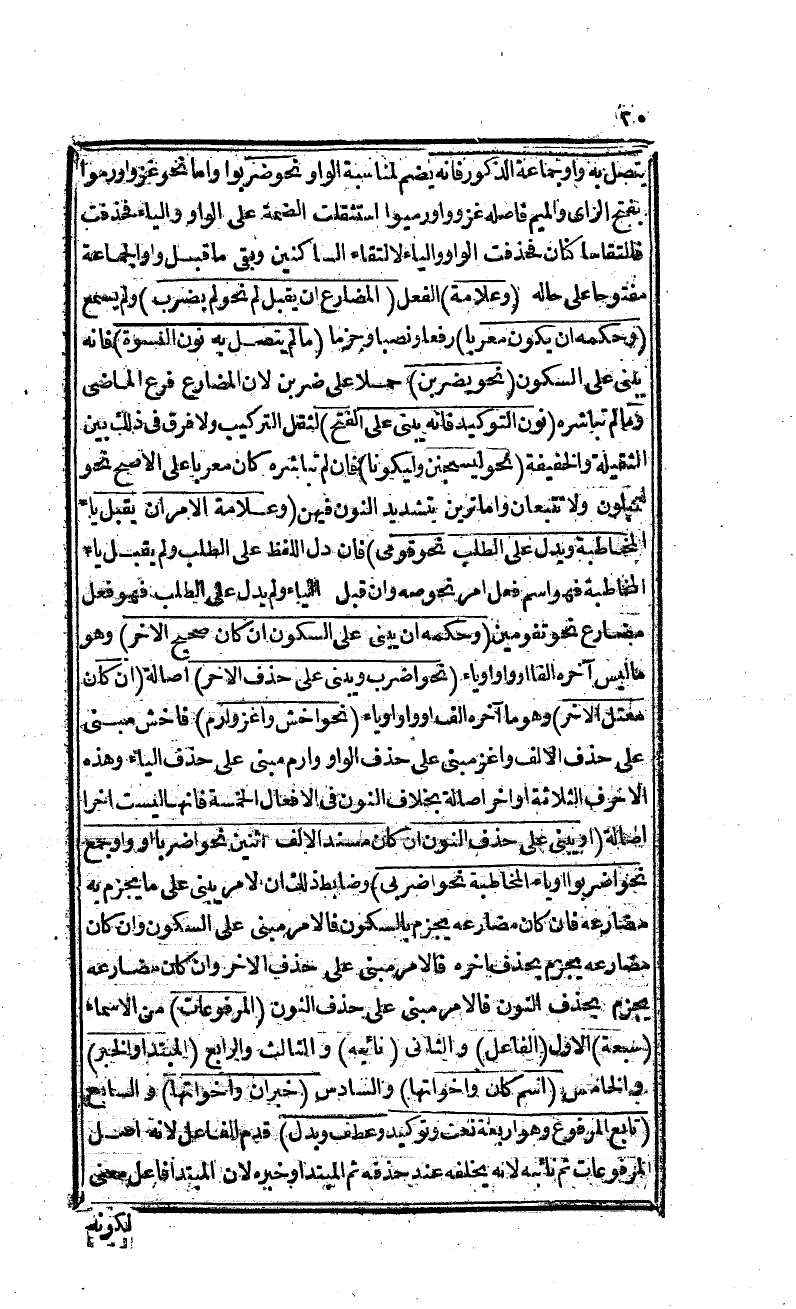 ٣٠
يتصل به واو جماعة الذكور فانه يضم لمناسبة الواو نحو ضربوا واما نحو غزوا ورموا
بفتح الزاى والميم فاصله غزووا ورميوا استثقلت الضمة على الواو والياء فحذفت
فالتقا ساكنان فحذفت الواو والياء لالتقاء الساكنين وبقى ماقبل واو الجماعة
مفتوحا على حاله (وعلامة) الفعل (المضارع ان يقبل لم نحو لم يضرب) ولم يسمع
(وحكمه ان يكون معربا) رفعا ونصبا وجزما (مالم يتصل به نون النسوة) فانه
يبنى على السكون (نحو يضربن) حملا على ضربن لان المضارع فرع الماضى
ومالم تباشره (نون التوكيد فانه يبنى على الفتح) لثقل التركيب ولا فرق فى ذلك بين
الثقيلة والخفيفة (نحو ليسجنن وليكونا) فان لم تباشره كان معربا على الاصح نحو
لتبلون ولا تتبعان واما ترين بتشديد النون فيهن (وعلامة الامر ان يقبل ياء
المخاطبة ويدل على الطلب نحو قومى) فان دل اللفظ على الطلب ولم يقبل ياء
المخاطبة فهو اسم فعل امر نحو صه وان قبل الياء ولم يدل على الطلب فهو فعل
مضارع نحو تقومين (وحكمه ان يبنى على السكون ان كان صحيح الاخر) وهو
ماليس آخره الفا او واوا وياء (نحو اضرب ويبنى على حذف الاخر) اصالة (ان كان
معتل الاخر) وهو ما آخره الف او واو اوياء (نحو اخش واغز وارم) فاخش مبنى
على حذف الالف واغز مبنى على حذف الواو وارم مبنى على حذف الياء وهذه
الاحرف الثلاثة اواخر اصالة بخلاف النون فى الافعال الخمسة فانها ليست اخرا
اصالة (او يبنى على حذف النون ان كان مسند الالف اثنين نحو اضربا او واو جمع
نحو اضربوا اوياء المخاطبة نحو اضربى) وضابط ذلك ان لامر يبنى على ما يجزم به
مضارعه فان كان مضارعه يجزم بالسكون فالامر مبنى على السكون وان كان
مضارعه يجزم بحذف اخره فالامر مبنى على حذف الاخر وان كان مضارعه
يجزم بحذف النون فالامر مبنى على حذف النون (المرفوعات) من الاسماء
(سبعة) الاول (الفاعل) والثانى (نائبه) والثالث والرابع (المبتدا والخبر)
والخامس (اسم كان واخواتها) والسادس (خبر ان واخواتها) والسابع
(تابع المرفوع وهو اربعة نعت وتوكيد وعطف وبدل) قدم الفاعل لانه اصل
المرفوعات ثم نائبه لانه يخلفه عند حذفه ثم المبتدا وخبره لان المبتدا فاعل معنى
لكونه